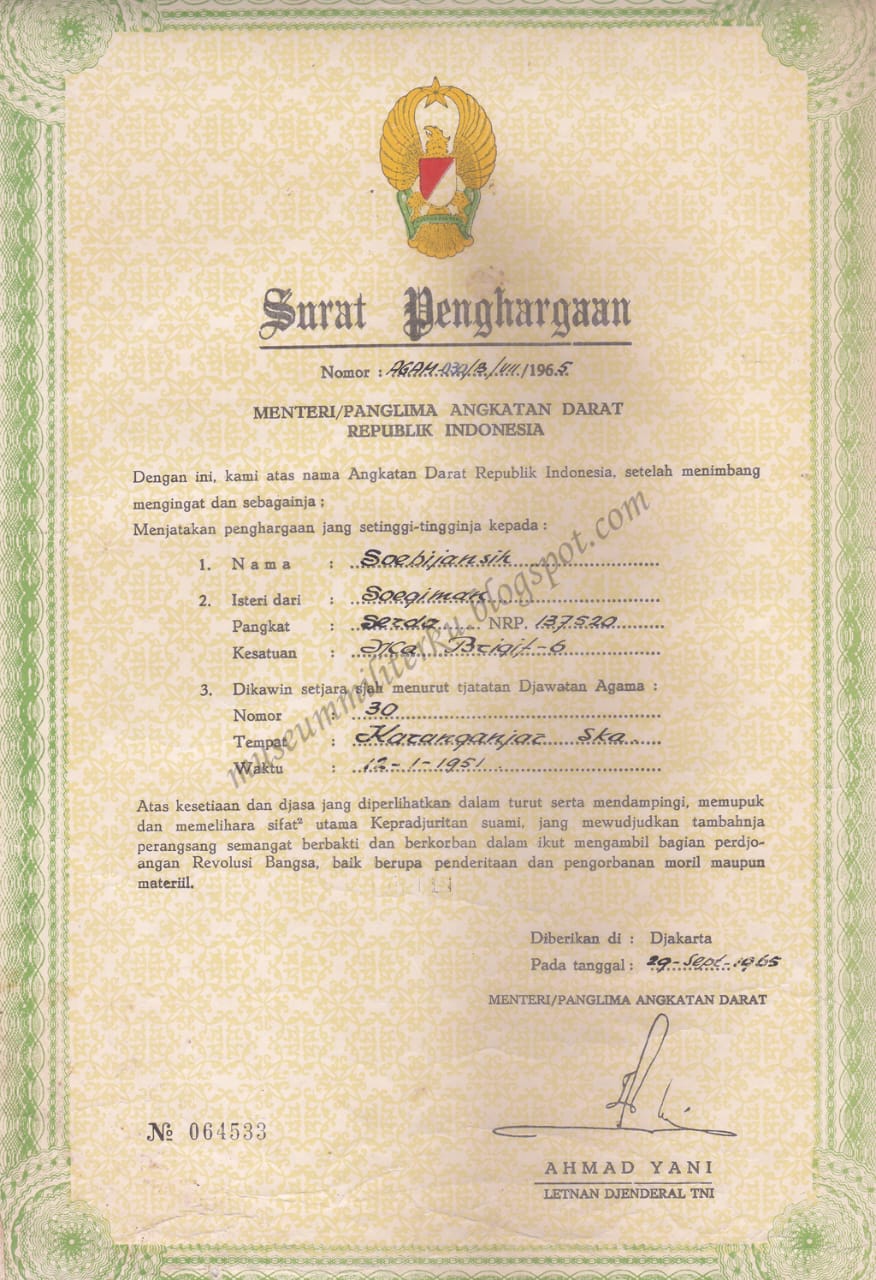 Surat Penghargaan
Nomor : AGAM-030/B/VII/1965
MENTERI/PANGLIMA ANGKATAN DARAT
REPUBLIK INDONESIA
Dengan ini, kami atas nama Angkatan Darat Republik Indonesia, setelah menimbang
mengingat dan sebagainja ;
Menjatakan penghargaan jang setinggi-tingginja kepada :
1. Nama : Soebijansih
2. Isteri dari : Soegiman
Pangkat : Serda NRP. 137520
Kesatuan : Ka Brigif-6
3. Dikawin setjara sjah menurut tjatatan Djawatan Agama :
Nomor : 30
Tempat : Karanganjar Ska.
Waktu : 12-1-1951
Atas kesetiaan dan djasa jang diperlihatkan dalam turut serta mendampingi, memupuk
dan memelihara sifat² utama Kepradjuritan suami, jang mewudjudkan tambahnja
perangsang semangat berbakti dan berkorban dalam ikut mengambil bagian perdjo-
angan Revolusi Bangsa, baik berupa penderitaan dan pengorbanan moril maupun
materiil.
Diberikan di : Djakarta
Pada tanggal : 29-Sept-1965
MENTERI/PANGLIMA ANGKATAN DARAT
№ 064533
AHMAD YANI
LETNAN DJENDERAL TNI
museummiliterku.blogspot.com